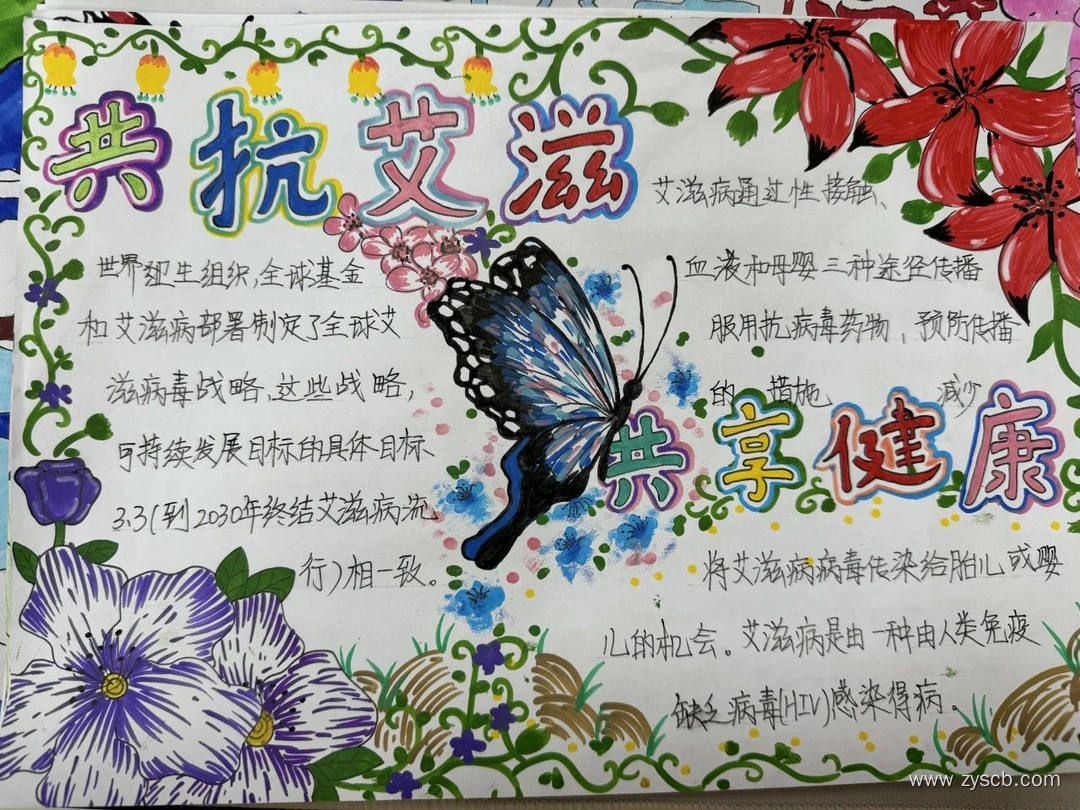 共抗艾滋
世界卫生组织,全球基金
和艾滋病部署制定了全球艾
滋病毒战略,这些战略,
可持续发展目标的具体目标
3.3(到2030年终结艾滋病流
行)相一致。
艾滋病通过性接触、
血液和母婴三种途径传播
服用抗病毒药物,预防传播
的 措施 减少
共享健康
将艾滋病病毒传染给胎儿或婴
儿的机会。艾滋病是由一种由人类免疫
缺乏病毒(HIV)感染得病。
www.zyscb.com